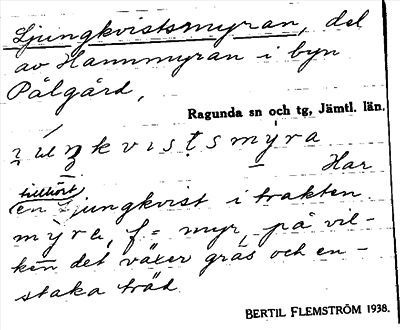 Ljungkvistsmyran, del
av Hammmyran i byn
Pålgård,
Ragunda sn och tg, Jämtl. län.
kvistsmyra
Har
tillhört
en Ljungkvist i trakten
myra, f = myr, på vil-
ken det växer gräs och en-
staka träd.
BERTIL FLEMSTRÖM 1938.